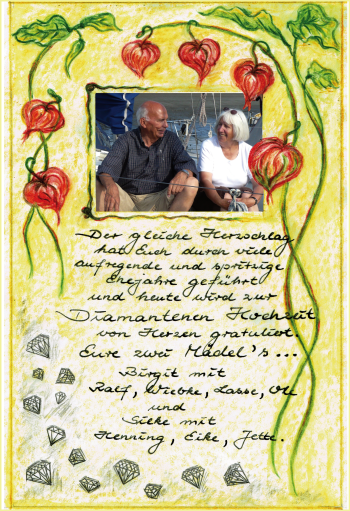 Der gleiche Herzschlag
hat Euch durch viele
aufregende und spritzige
Ehejahre geführt
und heute wird zur
Diamantenen Hochzeit
von Herzen gratuliert.
Eure zwei Mädel's...
Birgit mit
Ralf, Wiebke, Lasse, Ole
und
Silke mit
Henning, Eike, Jette.